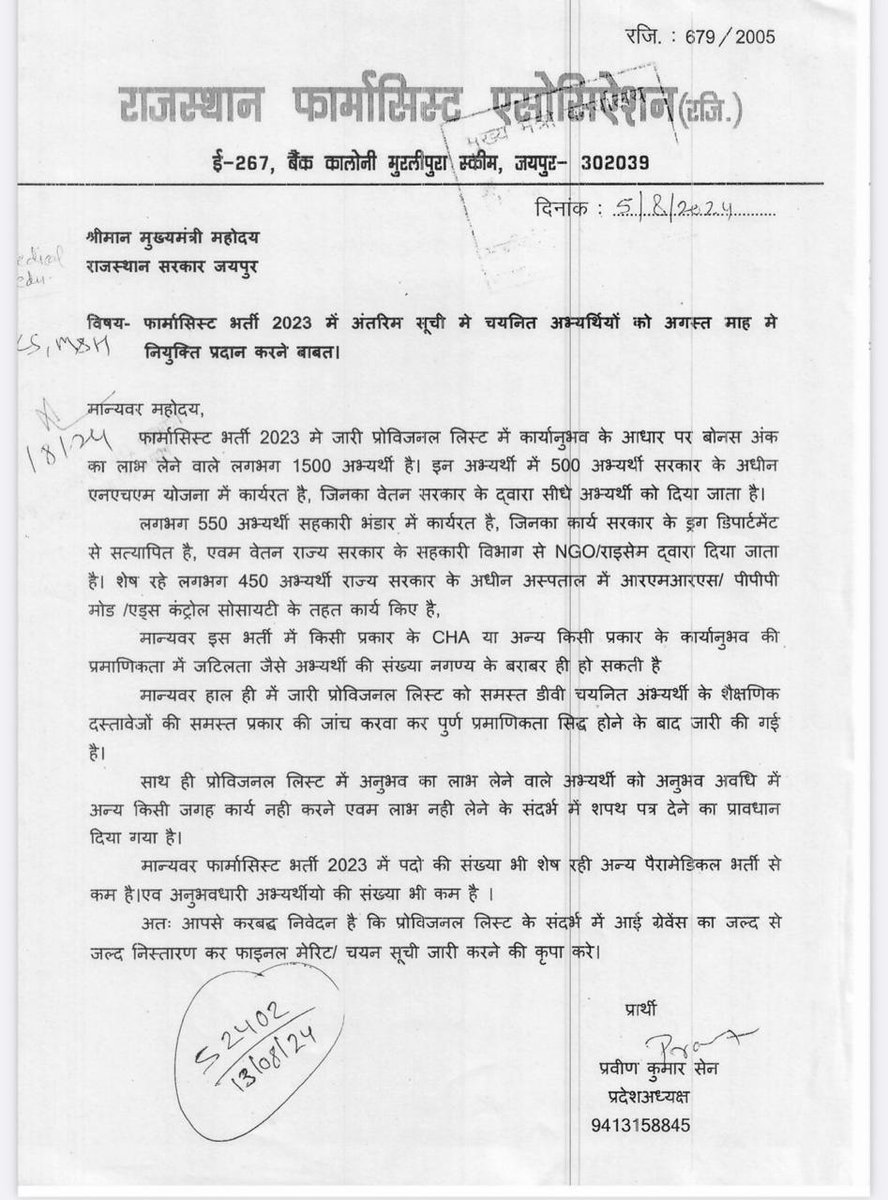 रजि. : 679/2005
राजस्थान फार्मासिस्ट एसोसिऐशन(रजि.)
मुख्य मंत्री
ई-267, बैंक कालोनी मुरलीपुरा स्कीम, जयपुर- 302039
दिनांक : 5/8/2024
श्रीमान मुख्यमंत्री महोदय
राजस्थान सरकार जयपुर
edical
edu.
विषय- फार्मासिस्ट भर्ती 2023 में अंतरिम सूची मे चयनित अभ्यर्थियों को अगस्त माह मे
नियुक्ति प्रदान करने बाबत।
CS, M&H
मान्यवर महोदय,
1/8/24
फार्मासिस्ट भर्ती 2023 मे जारी प्रोविजनल लिस्ट में कार्यानुभव के आधार पर बोनस अंक
का लाभ लेने वाले लगभग 1500 अभ्यर्थी है। इन अभ्यर्थी में 500 अभ्यर्थी सरकार के अधीन
एनएचएम योजना में कार्यरत है, जिनका वेतन सरकार के द्वारा सीधे अभ्यर्थी को दिया जाता है।
लगभग 550 अभ्यर्थी सहकारी भंडार में कार्यरत है, जिनका कार्य सरकार के ड्रग डिपार्टमेंट
से सत्यापित है, एवम वेतन राज्य सरकार के सहकारी विभाग से NGO/राइसेम द्वारा दिया जाता
है। शेष रहे लगभग 450 अभ्यर्थी राज्य सरकार के अधीन अस्पताल में आरएमआरएस/ पीपीपी
मोड /एड्स कंट्रोल सोसायटी के तहत कार्य किए है,
मान्यवर इस भर्ती में किसी प्रकार के CHA या अन्य किसी प्रकार के कार्यानुभव की
प्रमाणिकता में जटिलता जैसे अभ्यर्थी की संख्या नगण्य के बराबर ही हो सकती है
मान्यवर हाल ही में जारी प्रोविजनल लिस्ट को समस्त डीवी चयनित अभ्यर्थी के शैक्षणिक
दस्तावेजों की समस्त प्रकार की जांच करवा कर पुर्ण प्रमाणिकता सिद्ध होने के बाद जारी की गई
है।
साथ ही प्रोविजनल लिस्ट में अनुभव का लाभ लेने वाले अभ्यर्थी को अनुभव अवधि में
अन्य किसी जगह कार्य नही करने एवम लाभ नही लेने के संदर्भ में शपथ पत्र देने का प्रावधान
दिया गया है।
मान्यवर फार्मासिस्ट भर्ती 2023 में पदो की संख्या भी शेष रही अन्य पैरामेडिकल भर्ती से
कम है।एव अनुभवधारी अभ्यर्थीयो की संख्या भी कम है ।
अतः आपसे करबद्ध निवेदन है कि प्रोविजनल लिस्ट के संदर्भ में आई ग्रेवेंस का जल्द से
जल्द निस्तारण कर फाइनल मेरिट/ चयन सूची जारी करने की कृपा करे।
प्रार्थी
S 2402
13/08/24
प्रवीण कुमार सेन
प्रदेशअध्यक्ष
9413158845